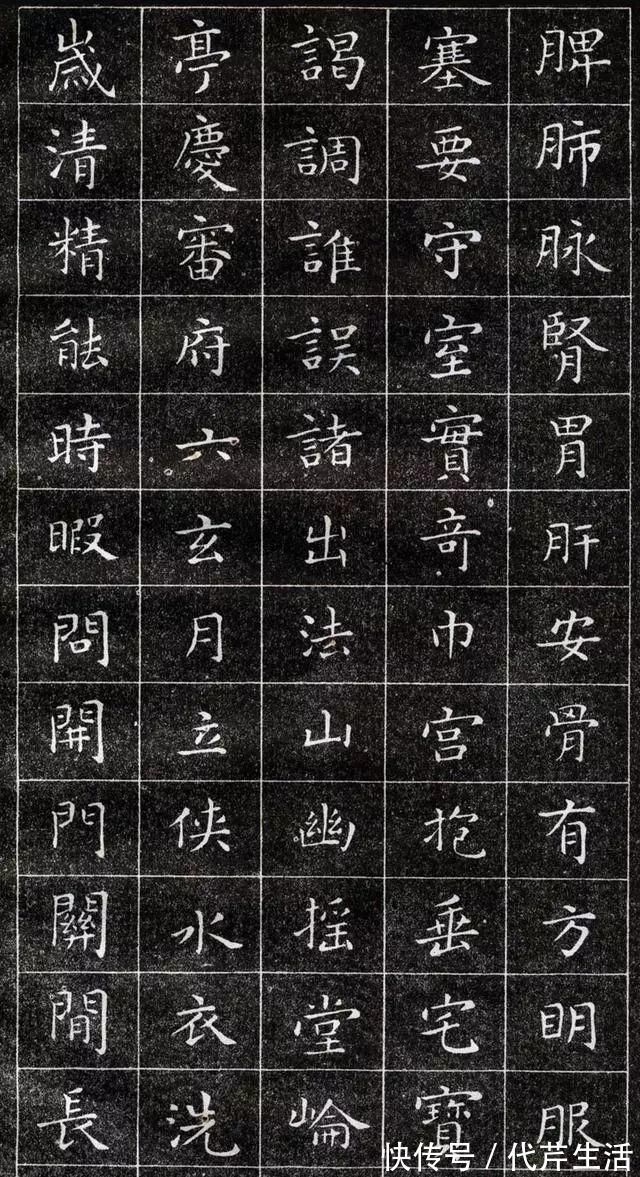 脾肺脉腎胃肝安骨有方明服
塞要守室實奇巾宫抱垂宅寶
謁調誰誤諸出法山幽摇堂崘
亭慶審府六玄月立侠水衣洗
歲清精能時暇問開門關閒長
快传号/代芹生活